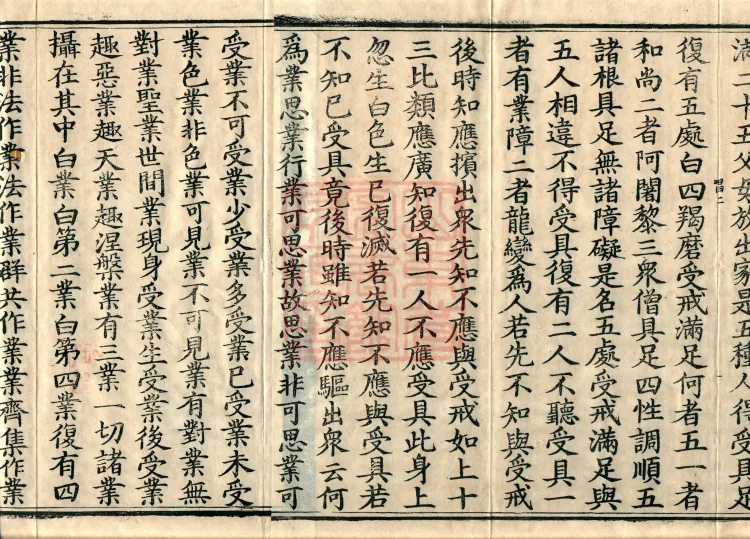 滿二十五父母放出家是五種人得受具足
復有五處白四羯磨受戒滿足何者五一者
和尚二者阿闍黎三衆僧具足四性調順五
諸根具足無諸障礙是名五處受戒滿足與
五人相違不得受具復有二人不聽受具一
者有業障二者龍變爲人若先不知與受戒
後時知應擯出衆先知不應與受戒如上十
三比類應廣知復有一人不應受具此身上
忽生白色生已復滅若先知不應與受具若
不知已受具竟後時雖知不應驅出衆云何
爲業思業行業可思業故思業非可思業可
受業不可受業少受業多受業已受業未受
業色業非色業可見業不可見業有對業無
對業聖業世間業現身受業生受業後受業
趣惡業趣天業趣涅槃業有三業一切諸業
攝在其中白業白第二業白第四業復有四
業非法作業法作業群共作業業齊集作業